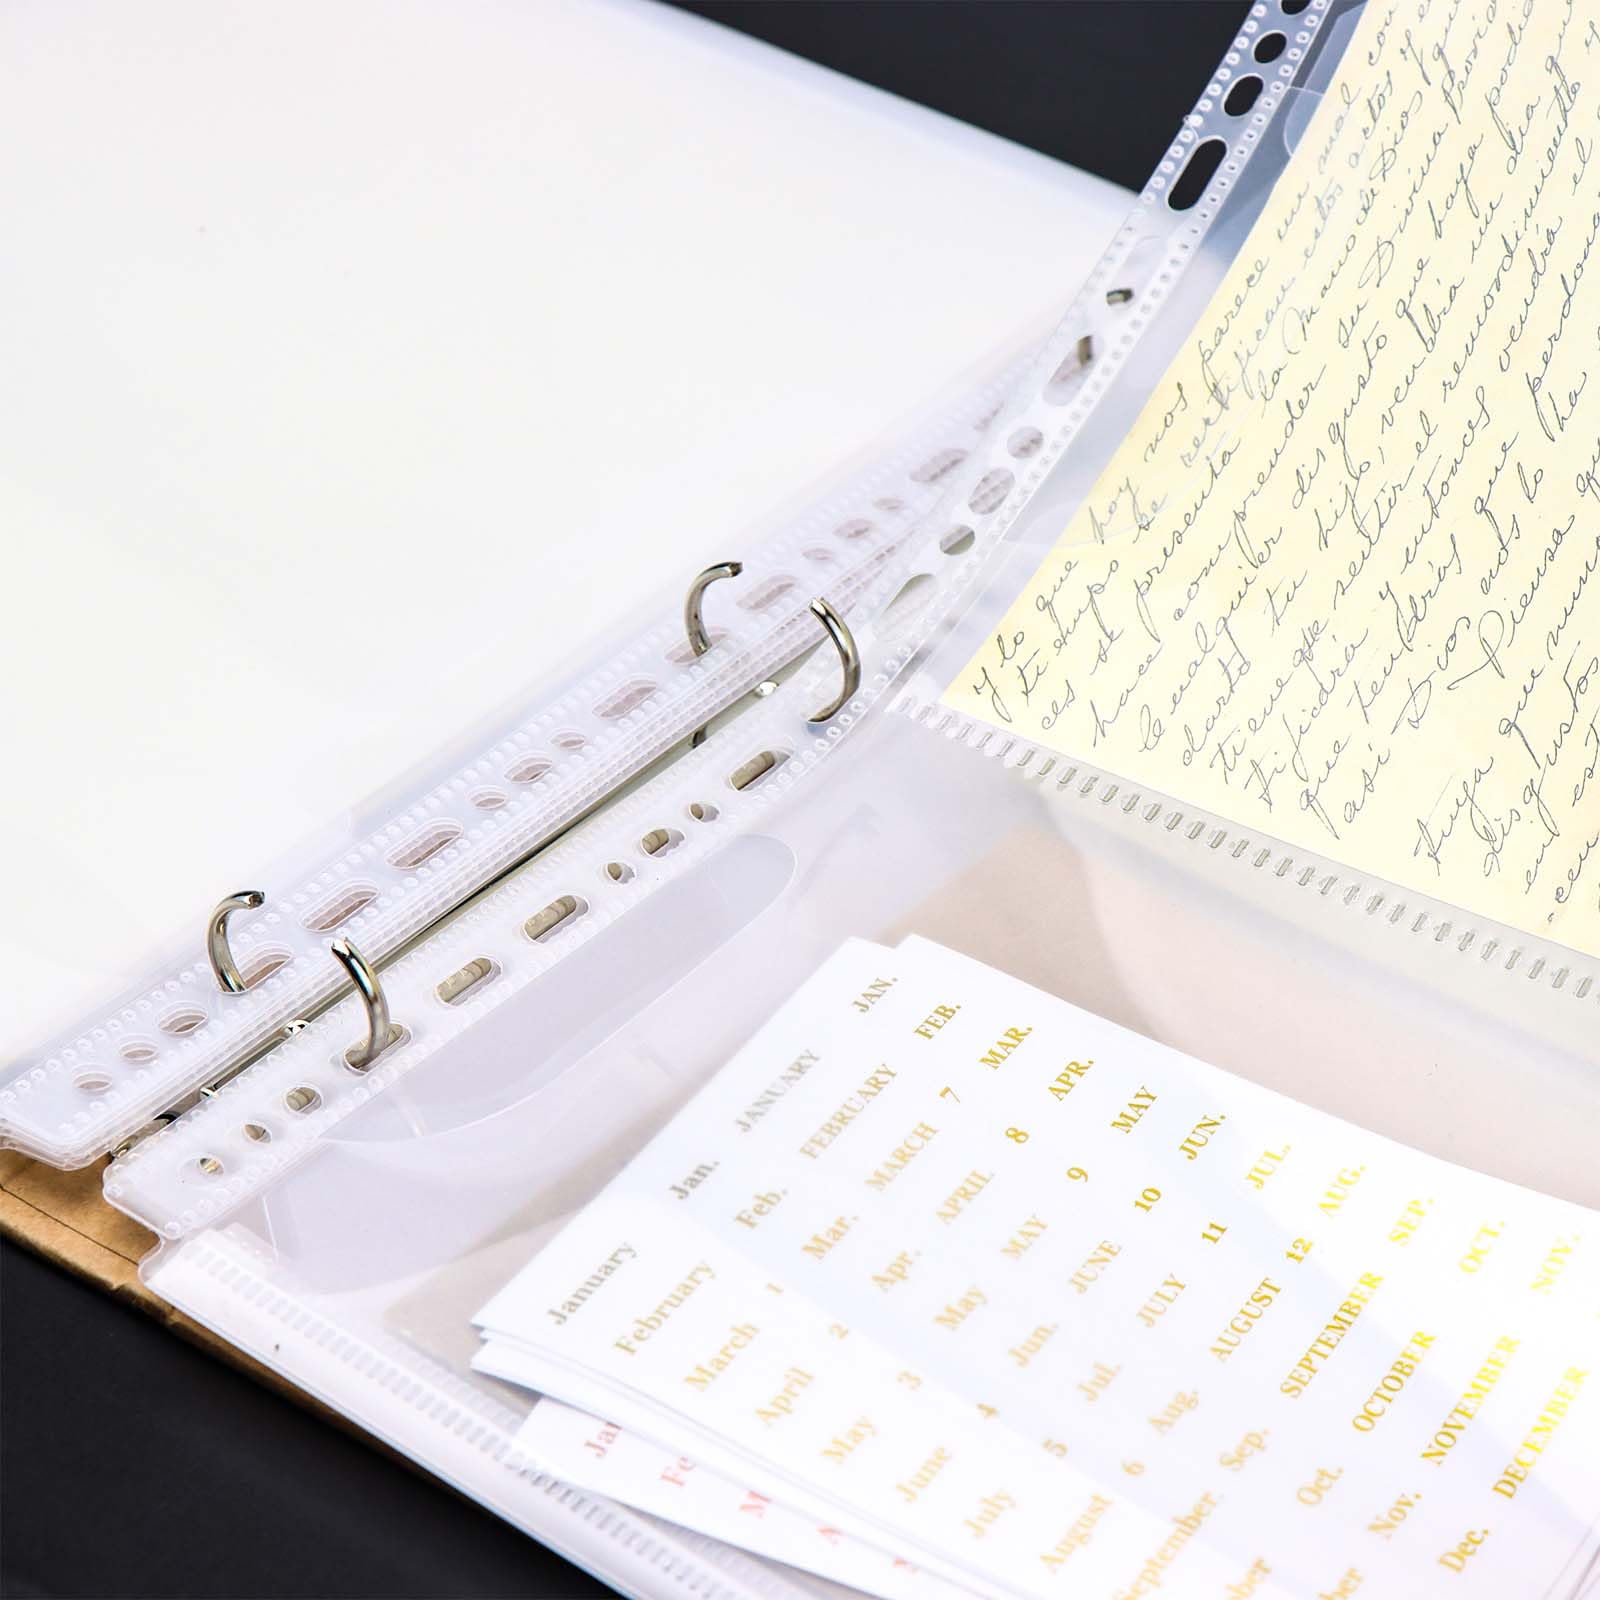 y lo que hoy nos parece un mal con e
tiempo se certifican estos actos y e
ces se presenta la Mano de Dios
hace comprender su Divina Provid
cualquier disgusto que haya podid
darte tu hijo, vendrá un dia que
tiene que sentir el remordimiento y
y entonces vendrá el
que tendrás que perdona
así Dios nos lo ha
Piensa qu
tuya que
disgustos
JAN.
FEB.
MAR.
APR.
MAY
JUN.
JUL.
AUG.
SEP.
OCT.
NOV.
JANUARY
FEBRUARY
MARCH
APRIL
MAY
JUNE
JULY
AUGUST
SEPTEMBER
OCTOBER
NOVEMBER
DECEMBER
7
8
9
10
11
12
Jan.
Feb.
Mar.
Apr.
May
Jun.
Jul.
Aug.
Sep.
Oct.
Nov.
Dec.
1
2
3
4
5
6
January
February
March
April
May
June
July
August
September
ber
ber
Jan
Fe
M
A